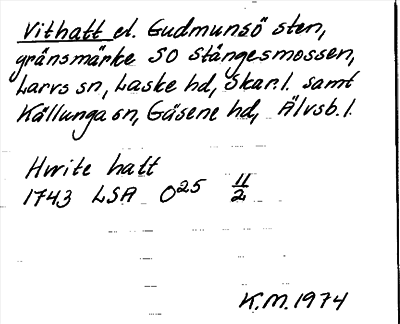 Vithatt el. Gudmunsö sten,
gränsmärke SO Stångesmossen,
Larvs sn, Laske hd, Skar.l. samt
Källunga sn, Gäsene hd, Älvsb.l.
Hwite hatt
1743 LSA O25 11/2
K.M. 1974